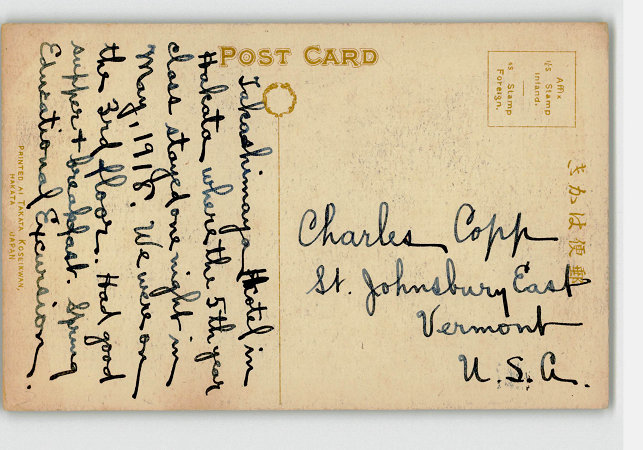 POST CARD
Affix
1½ Stamp
Inland.
4s Stamp
Foreign.
きかは便郵
Takashimaya Hotel in
Hakata, where the 5th year
class stayed one night in
May, 1918. We were on
the 3rd floor. Had good
supper + breakfast. Spring
Educational Excursion.
Charles Copp
St. Johnsbury East
Vermont
U.S.A.
PRINTED AT TAKATA KOSEIKWAN,
HAKATA JAPAN